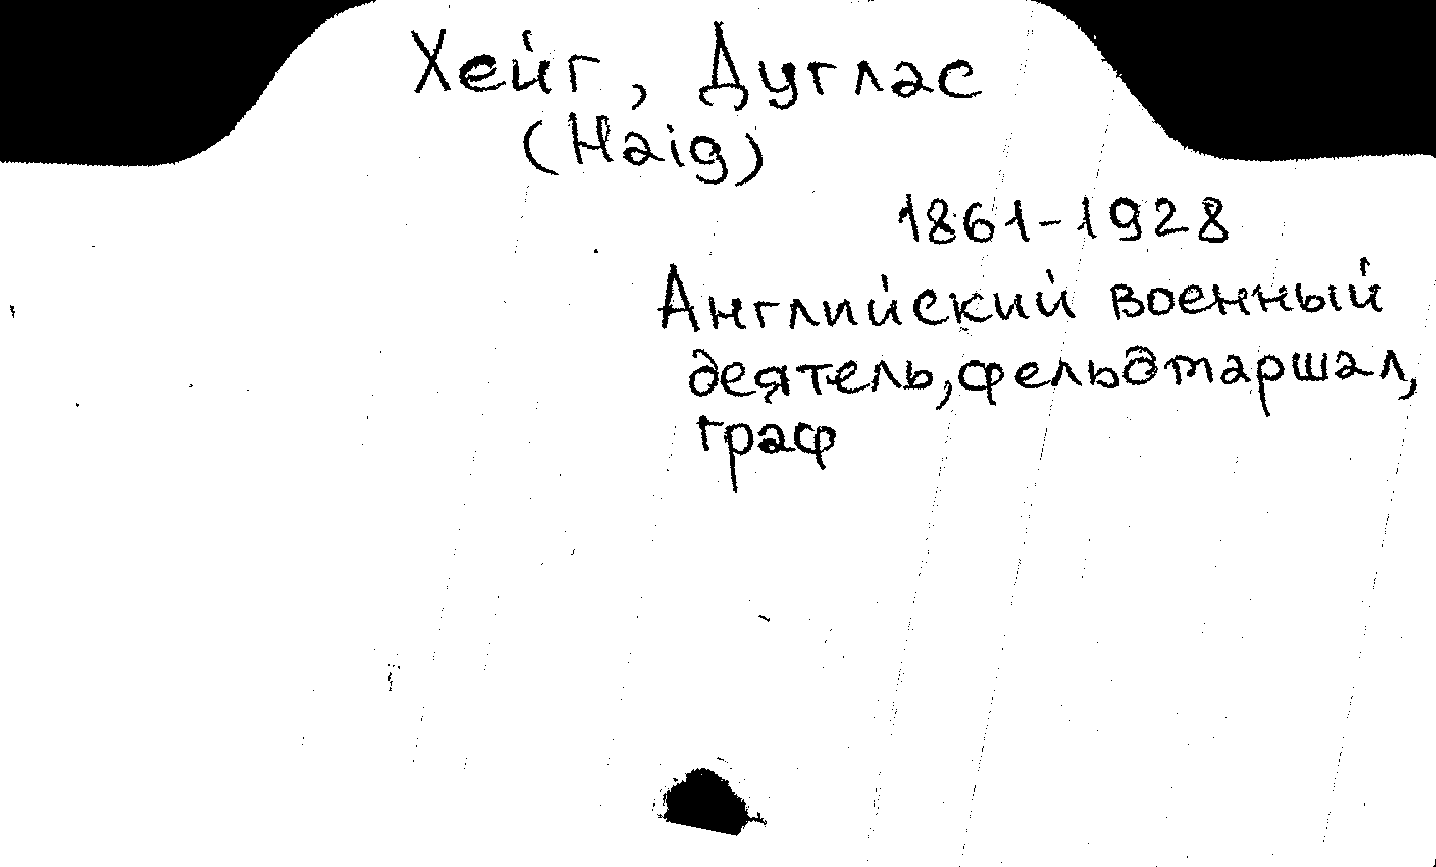 Хейг, Дуглас
(Haig)
1861-1928
Английский военный
деятель, фельдмаршал,
граф